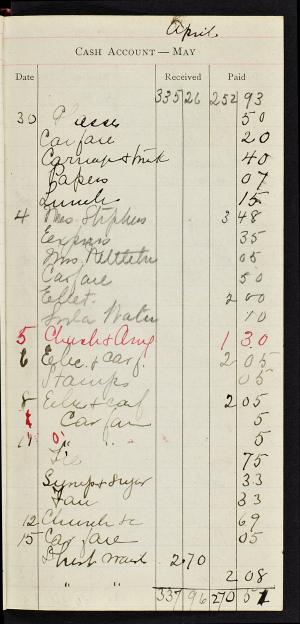 April
CASH ACCOUNT — MAY
Date Received Paid
335 26 252 93
30 50
Carfare 20
Carriage & 40
Papers 07
Lunch 15
4 Mrs. Stephens 3 48
Express 35
Mrs. 05
Carfare 50
Elect. 2 00
Soda Water 10
5 Church & 1 30
6 Elec. & Carf. 2 05
Stamps 05
8 & carf 2 05
Carfare 5
" " 5
Tie 75
Syrup & Sugar 33
Fan 33
12 Church &c 69
15 Carfare 05
2 70
" " 2 08
337 96 270 51